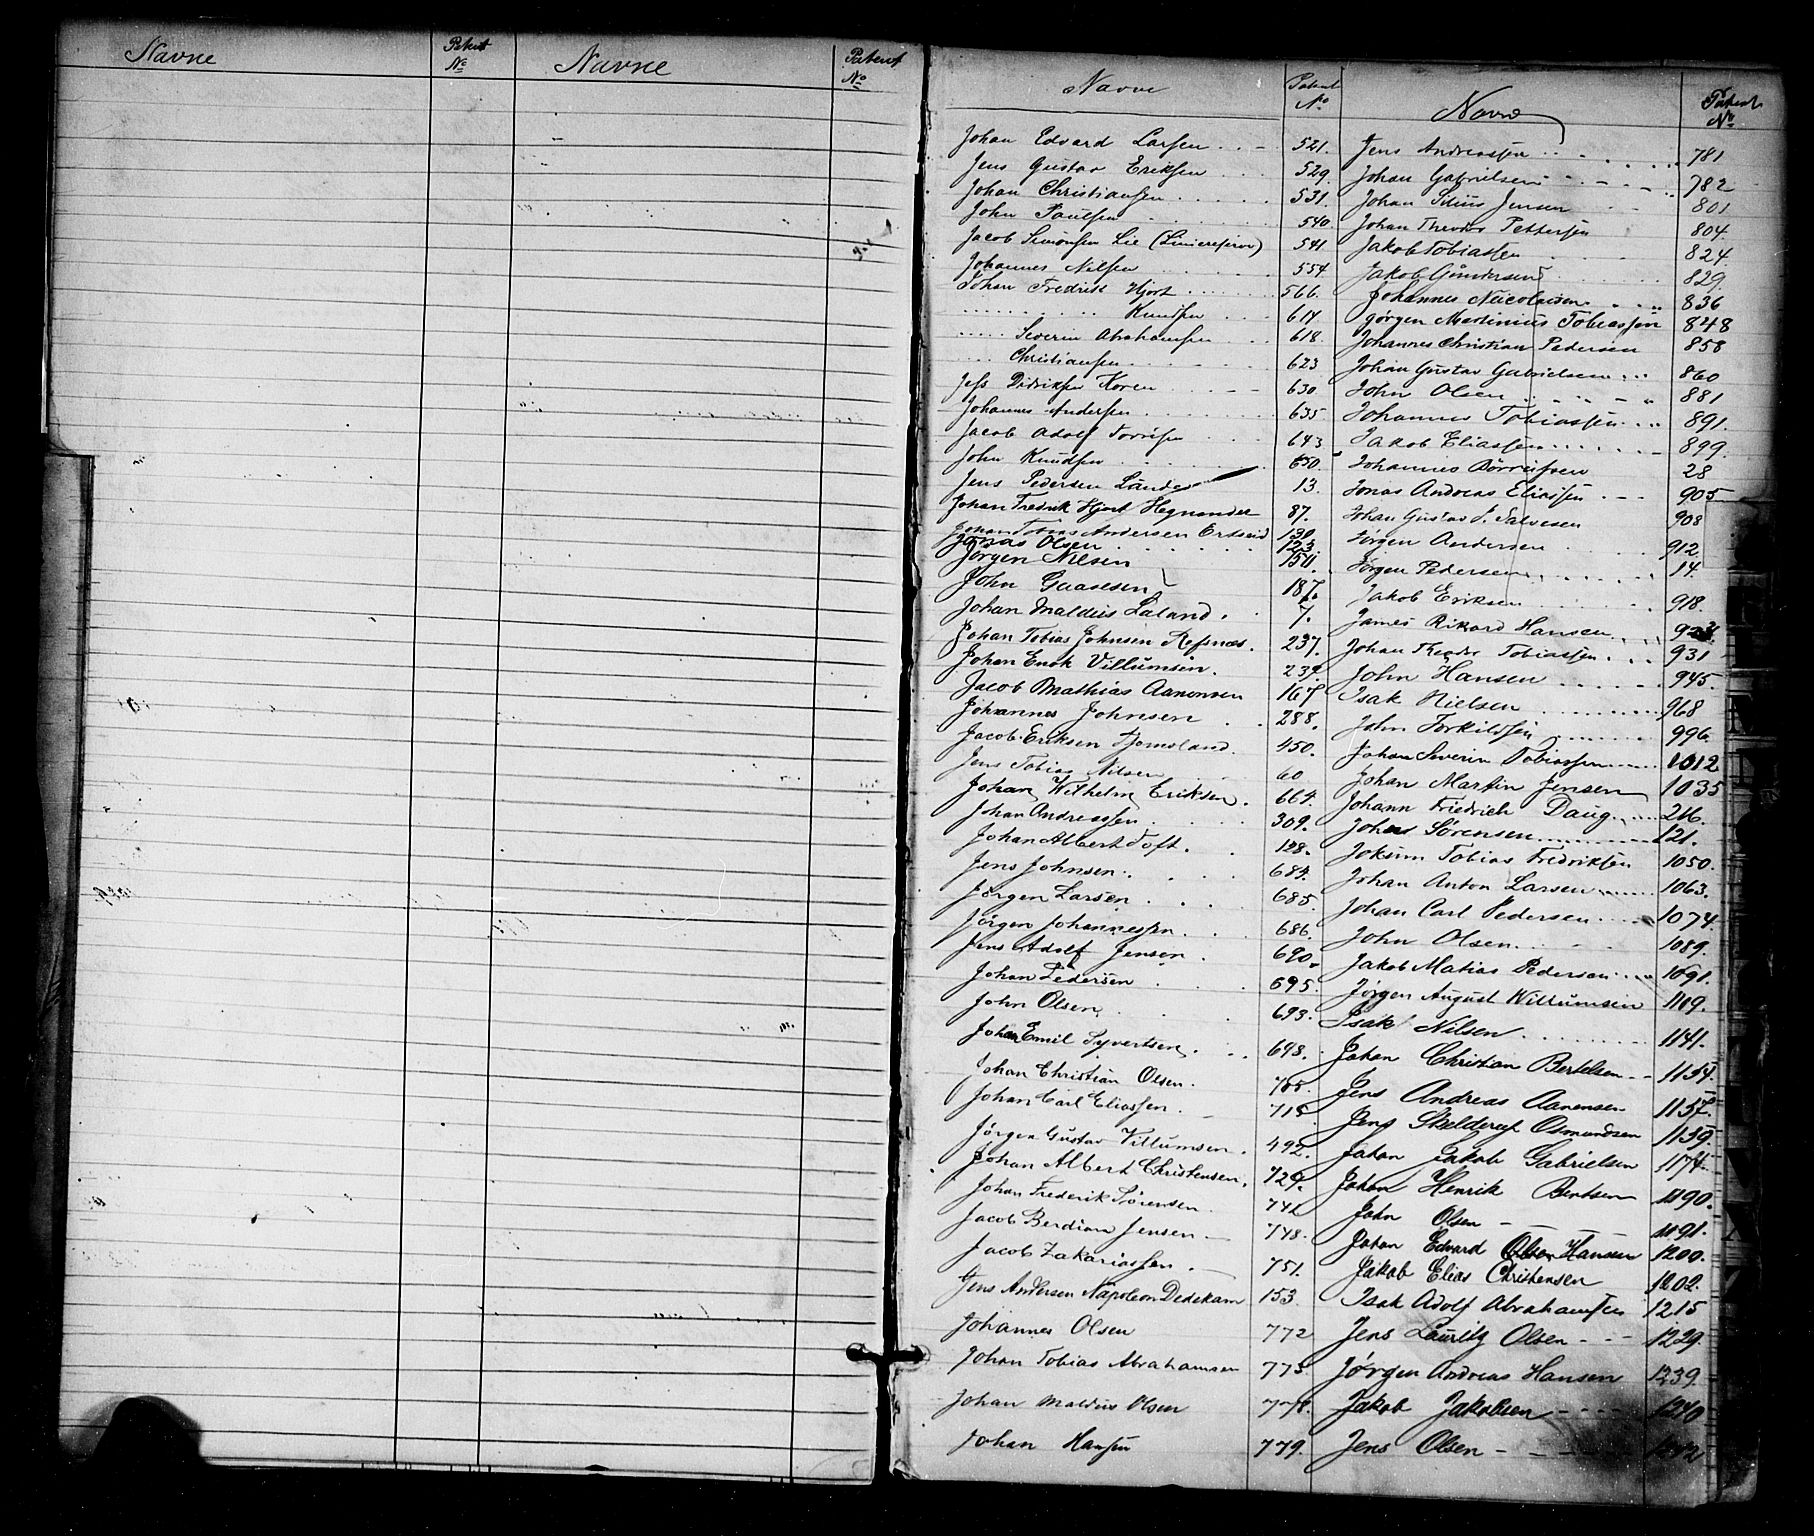 Navne Patent No Navne Patent No
Navne Patent No Navne Patent No
Johan Edvard Larsen 521.
Jens Gustav Eriksen 529
Johan Christiansen 531.
John Paulsen 540
Jacob Simonsen Lie 541
Johannes Nilsen 554
Johan Fredrik Hjort 566.
Knudsen 614
Severin Abrahamsen 618
Christiansen 623
Jess Didriksen Koren 630
Johannes Andersen 635
Jacob Adolf 643
John Knudsen 650
Jens Pedersen Lande 13.
Johan Fredrik Hjort Hegnander 87.
Johan Tobias Andersen Ertseid 130
Jonas Olsen 123
Jörgen Nilsen 150.
John Gaasesen 187.
Johan Maldus Laland. 7.
Johan Tobias Johnsen Refsnæs. 237.
Johan Enok Villumsen. 239
Jacob Mathias Aanonsen 167
Johannes Johnsen 288.
Jacob Eriksen Tjomsland. 450.
Jens Tobias Nilsen 60
Johan Wilhelm Eriksen. 664.
Johan Andreassen 309.
Johan Albert Toft. 128.
Jens Johnsen. 684.
Jörgen Larsen 685.
Jörgen Johannessen 686.
Jens Adolf Jensen 690.
Johan Pedersen 695.
John Olsen 693.
Johan Emil Syvertsen. 698.
Johan Christian Olsen. 705.
Johan Carl Eliassen. 715
Jörgen Gustav Villumsen. 492.
Johan Albert Christensen. 729.
Johan Frederik Sörensen. 742
Jacob Berdian Jensen 748.
Jacob Zakariassen. 751.
Jens Andersen Napoleon Dedekam 153.
Johannes Olsen 772
Johan Tobias Abrahamsen 773
Johan Maldus Olsen 778.
Johan Hansen 779.
Jens Andreassen 781
Johan Gabrielsen 782
Johan Silius Jensen 801
Johan Theodor Pettersen 804.
Jakob Tobiassen 824.
Jakob Gundersen 829
Johannes Nicolaisen 836
Jørgen Martinius Tobiassen 848
Johannes Christian Pedersen 858
Johan Gustav Gabrielsen 860
John Olsen 881
Johannes Tobiassen 891.
Jakob Eliassen 899.
Johannes Börresen 28
Jonas Andreas Eliassen 905
Johan Gustav J. Salvesen 908
Jörgen Andersen 912.
Jörgen Pedersen 14.
Jakob Eriksen 918.
James Rikard Hansen
Johan Theodor Tobiassen 931
John Hansen 945.
Isak Nielsen 968
John Torkildsen 996.
Johan Severin Tobiassen 1012
Johan Martin Jensen 1035
Johann Friedrich Daug 26.
Johan Sörensen 121.
Jokum Tobias Fredriksen 1050.
Johan Anton Larsen 1063.
Johan Carl Pedersen 1074.
John Olsen 1089.
Jakob Matias Pedersen 1091.
Jörgen August Willumsen 1119.
Isak Nilsen 1141.
Johan Christian Bertelsen 1154.
Jens Andreas Aanensen 1157.
Jens Skelderup Osmundsen 1159.
Johan Jakob Gabrielsen 1174.
Johan Henrik Berntsen 1190.
John Olsen 1191.
Johan Edvard Olsen Hansen 1200.
Jakob Elias Christensen 1202.
Isak Adolf Abrahamsen 1215
Jens Lauritz Olsen 1229.
Jørgen Andreas Hansen 1239.
Jakob Jakobsen 1240
Jens Olsen